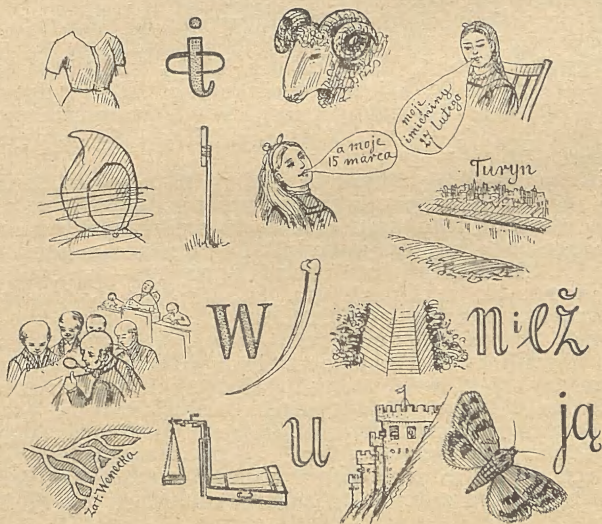 i
moje
imieniny
27 lutego
a moje
15 marca
Turyn
w
n i eż
Zat. Wenecka
u
ją